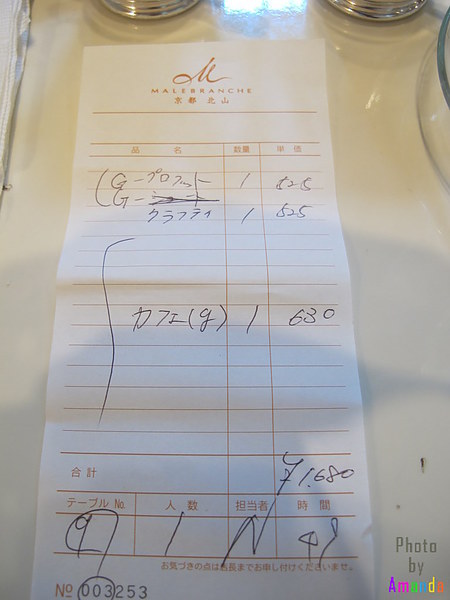 M
MALEBRANCHE
京都 北山
品 名 数量 単価
G- 1 525
G-
クラフティ 1 525
カフェ(g) 1 630
合計 ¥1,680
テーブルNo. 人数 担当者 時間
9 1 N
お気づきの点は店長までお申し付けくださいませ。
No 003253
Photo
by
Amanda